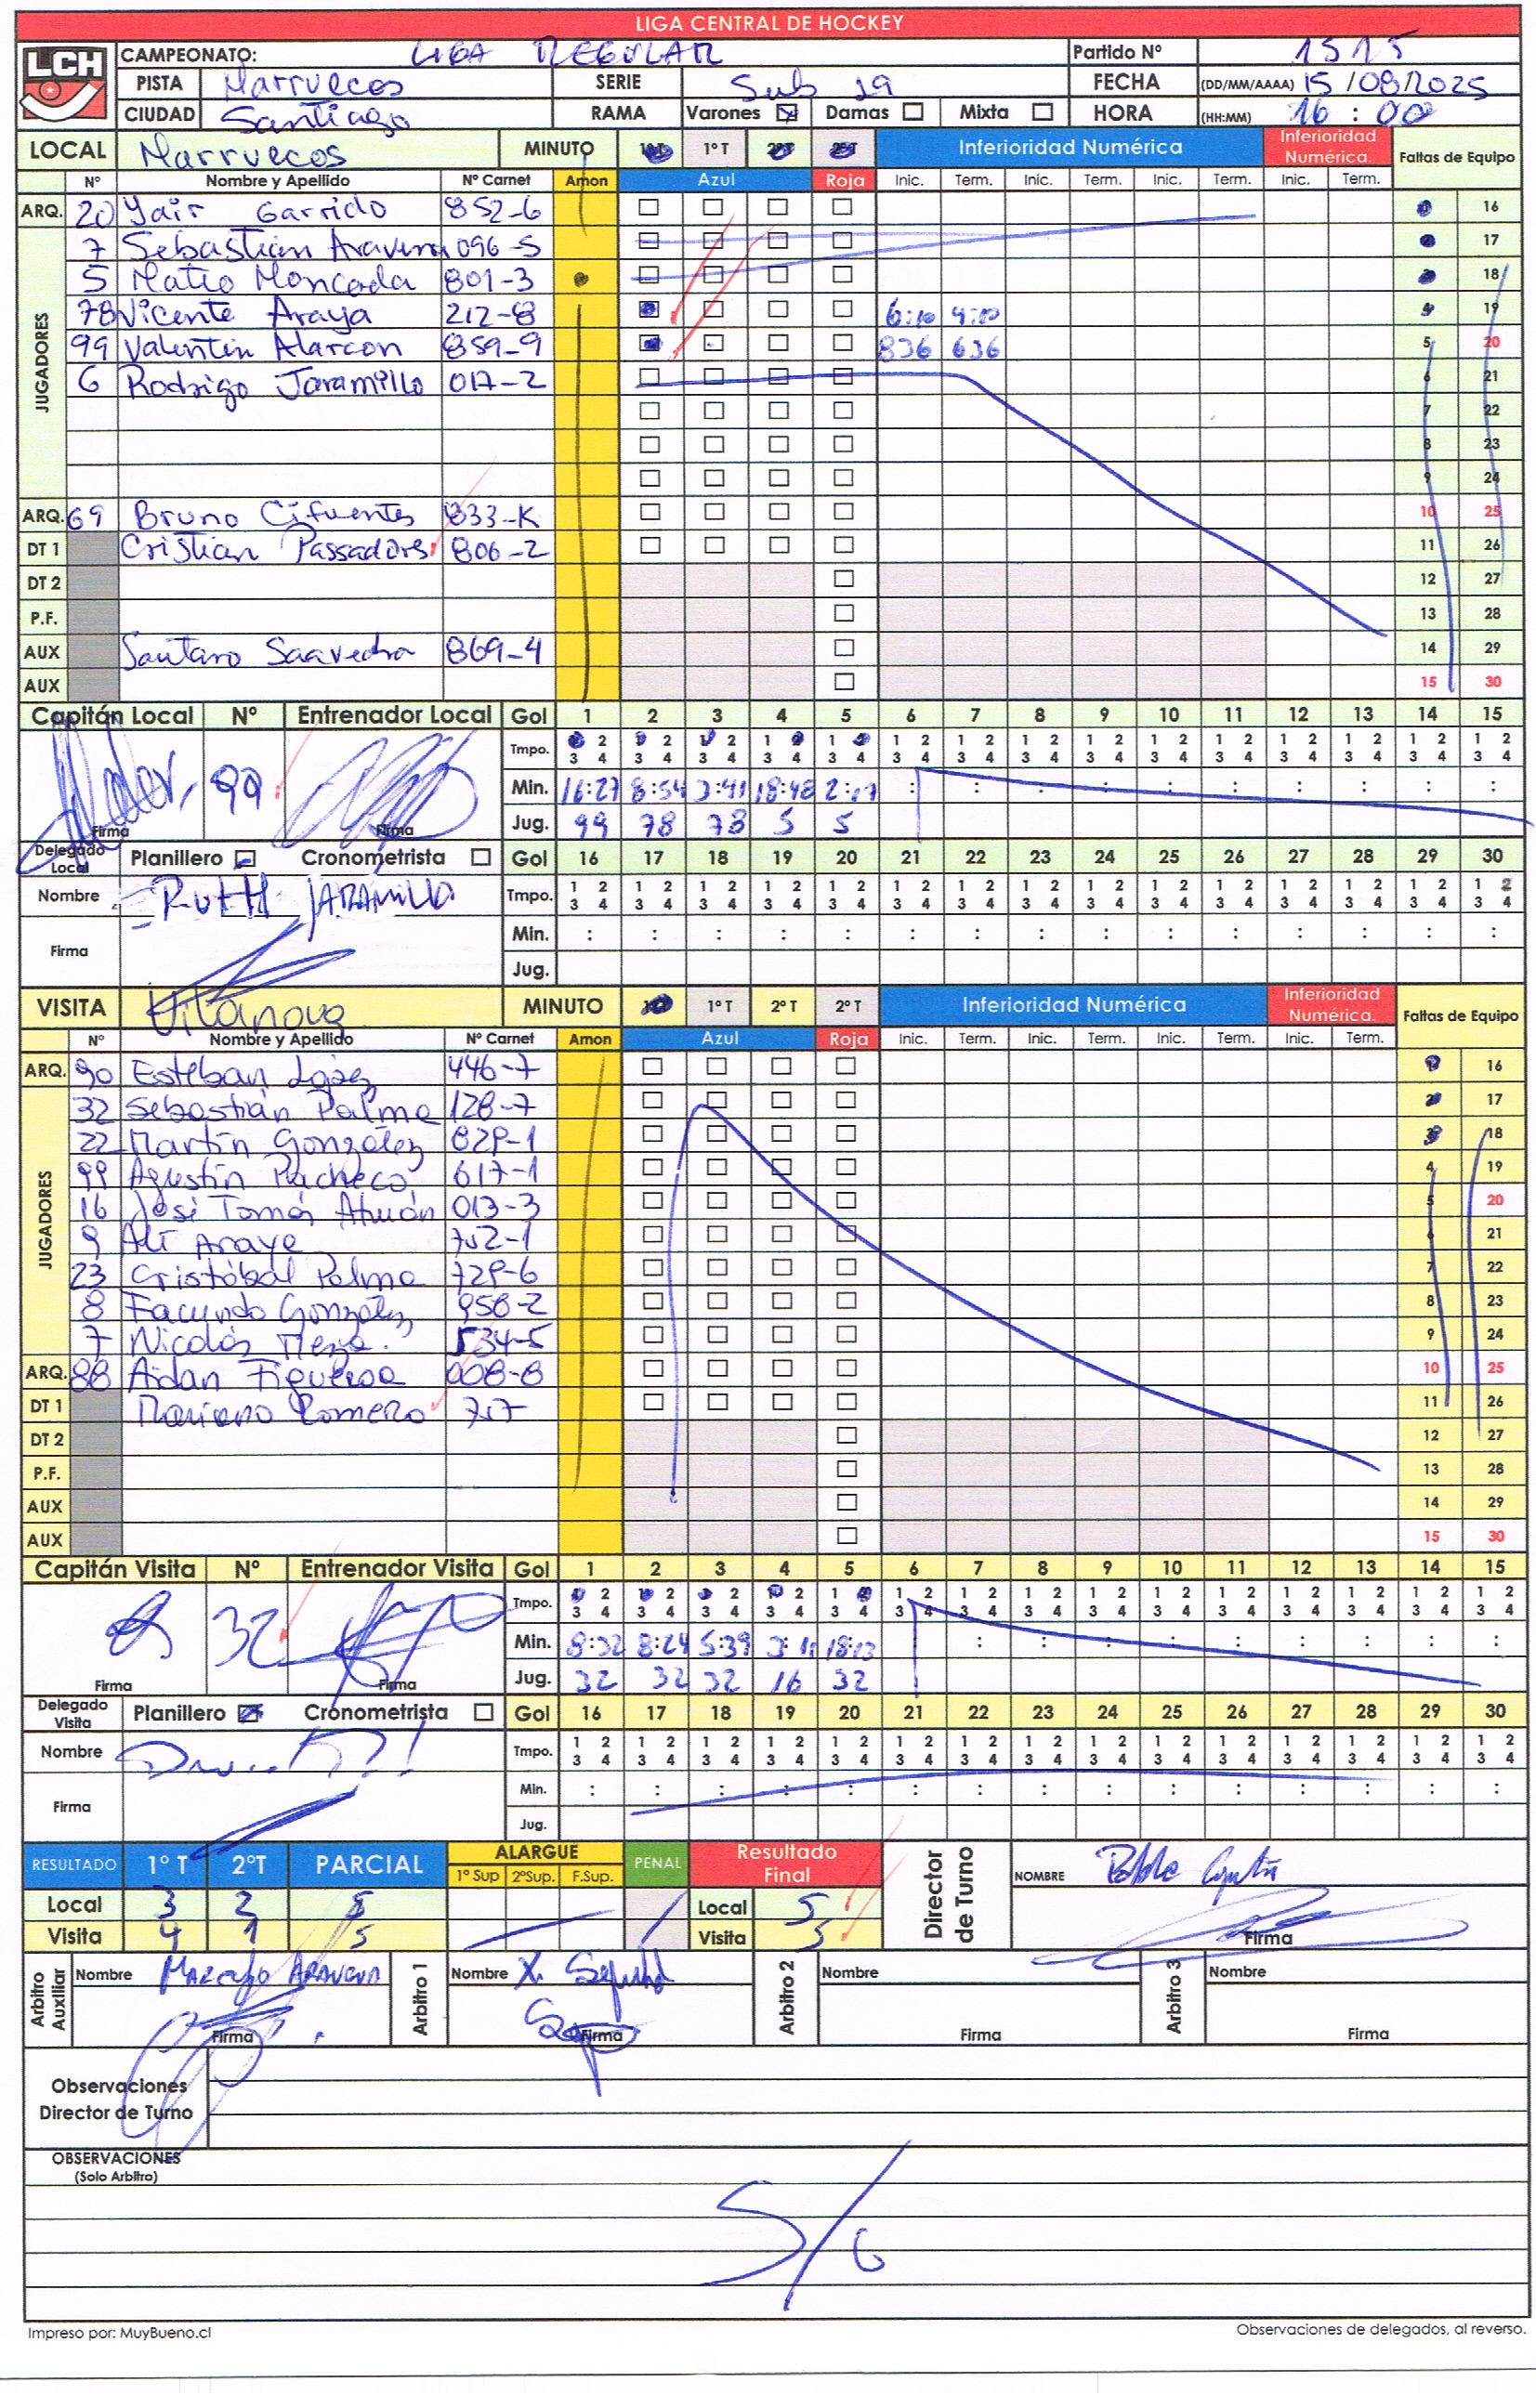 LIGA CENTRAL DE HOCKEY
LCH
CAMPEONATO: LIGA REGULAR Partido Nº 1515
PISTA Marruecos SERIE Sub 19 FECHA (DD/MM/AAAA) 15/08/2025
CIUDAD Santiago RAMA Varones Damas Mixta HORA (HH:MM) 16:00
LOCAL Marruecos MINUTO 1º T 1º T 2º T 2º T Inferioridad Numérica Inferioridad Numérica. Faltas de Equipo
Nº Nombre y Apellido Nº Carnet Amon Azul Roja Inic. Term. Inic. Term. Inic. Term. Inic. Term.
ARQ. 20 Yair Garrido 852-6 1 16
JUGADORES
7 Sebastian Aravena 096-5 2 17
5 Matio Moncada 801-3 3 18
78 Vicente Araya 212-8 6:10 4:10 4 19
99 Valentin Alarcon 859-9 836 636 5 20
6 Rodrigo Jaramillo 017-2 6 21
7 22
8 23
9 24
ARQ. 69 Bruno Cifuentes 833-K 10 25
DT 1 Cristian Passadors 806-2 11 26
DT 2 12 27
P.F. 13 28
AUX Sautaro Saavedra 869-4 14 29
AUX 15 30
Capitán Local Nº Entrenador Local Gol 1 2 3 4 5 6 7 8 9 10 11 12 13 14 15
Tmpo. 1 2 1 2 1 2 1 2 1 2 1 2 1 2 1 2 1 2 1 2 1 2 1 2 1 2 1 2 1 2
3 4 3 4 3 4 3 4 3 4 3 4 3 4 3 4 3 4 3 4 3 4 3 4 3 4 3 4 3 4
99 Min. 16:27 8:54 3:41 18:48 2:17 : : : : : : : : : :
Firma Firma Jug. 99 78 78 5 5
Delegado Local Planillero Cronometrista Gol 16 17 18 19 20 21 22 23 24 25 26 27 28 29 30
Nombre RUTH JARAMILLO Tmpo. 1 2 1 2 1 2 1 2 1 2 1 2 1 2 1 2 1 2 1 2 1 2 1 2 1 2 1 2 1 2
3 4 3 4 3 4 3 4 3 4 3 4 3 4 3 4 3 4 3 4 3 4 3 4 3 4 3 4 3 4
Firma Min. : : : : : : : : : : : : : : :
Jug.
VISITA Vilanova MINUTO 1º T 1º T 2º T 2º T Inferioridad Numérica Inferioridad Numérica. Faltas de Equipo
Nº Nombre y Apellido Nº Carnet Amon Azul Roja Inic. Term. Inic. Term. Inic. Term. Inic. Term.
ARQ. 90 Esteban López 446-7 1 16
JUGADORES
32 Sebastián Palma 128-7 2 17
22 Martín González 829-1 3 18
99 Agustín Pacheco 617-1 4 19
16 José Tomás Ahuán 013-3 5 20
9 Alí Araya 752-1 6 21
23 Cristóbal Palma 729-6 7 22
8 Facundo González 958-2 8 23
7 Nicolás Meza. 534-5 9 24
ARQ. 88 Aidan Figueroa 008-8 10 25
DT 1 Mariano Romero 757 11 26
DT 2 12 27
P.F. 13 28
AUX 14 29
AUX 15 30
Capitán Visita Nº Entrenador Visita Gol 1 2 3 4 5 6 7 8 9 10 11 12 13 14 15
Tmpo. 1 2 1 2 1 2 1 2 1 2 1 2 1 2 1 2 1 2 1 2 1 2 1 2 1 2 1 2 1 2
3 4 3 4 3 4 3 4 3 4 3 4 3 4 3 4 3 4 3 4 3 4 3 4 3 4 3 4 3 4
32 Min. 8:32 8:24 5:39 3:11 18:13 : : : : : : : : : :
Firma Firma Jug. 32 32 32 16 32
Delegado Visita Planillero Cronometrista Gol 16 17 18 19 20 21 22 23 24 25 26 27 28 29 30
Nombre Tmpo. 1 2 1 2 1 2 1 2 1 2 1 2 1 2 1 2 1 2 1 2 1 2 1 2 1 2 1 2 1 2
3 4 3 4 3 4 3 4 3 4 3 4 3 4 3 4 3 4 3 4 3 4 3 4 3 4 3 4 3 4
Firma Min. : : : : : : : : : : : : : : :
Jug.
RESULTADO 1º T 2ºT PARCIAL ALARGUE 1º Sup 2ºSup. F.Sup. PENAL Resultado Final Director de Turno NOMBRE Pablo
Local 3 2 5 Local 5
Visita 4 1 5 Visita 5 Firma
Arbitro Auxiliar Nombre MARCELO ARAVENA Arbitro 1 Nombre X. Sepulved Arbitro 2 Nombre Arbitro 3 Nombre
Firma Firma Firma Firma
Observaciones Director de Turno
OBSERVACIONES (Solo Arbitro)
S/O
Impreso por: MuyBueno.cl Observaciones de delegados, al reverso.